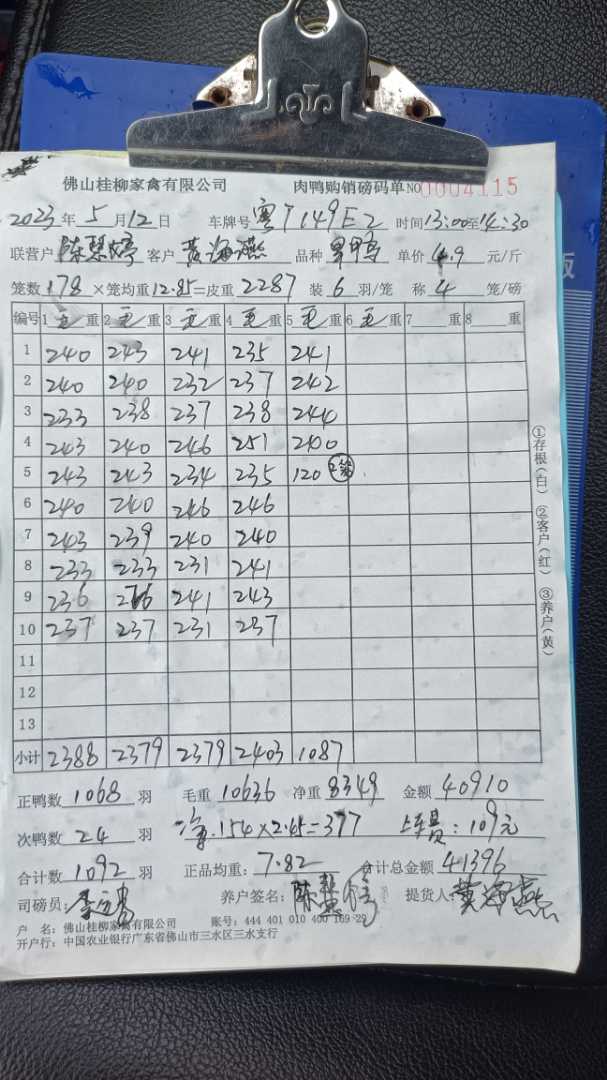 佛山桂柳家禽有限公司 肉鸭购销磅码单 NO 0004115
2023年5月12日 车牌号 粤T149E2 时间13:00至14:30
联营户 陈琴婷 客户 黄海燕 品种 男鸭 单价 4.9 元/斤
笼数 178 ×笼均重 12.85=皮重 2287 装 6 羽/笼 称 4 笼/磅
编号 1 毛 重 2 毛 重 3 毛 重 4 毛 重 5 毛 重 6 毛 重 7 重 8 重
1 240 243 241 235 241
2 240 240 232 237 242
3 233 238 237 238 244
4 243 240 246 251 240
5 243 243 234 235 120 2笼
6 240 240 246 246
7 243 239 240 240
8 233 233 231 241
9 236 241 243
10 237 237 231 237
11
12
13
小计 2388 2379 2379 2403 1087
正鸭数 1068 羽 毛重 10636 净重 8349 金额 40910
次鸭数 24 羽 净.154×2.45=377 上车费:109元
合计数 1092 羽 正品均重: 7.82 合计总金额 41396
司磅员: 养户签名: 提货人: 黄海燕
户 名: 佛山桂柳家禽有限公司 账号: 444 401 010 400 169 29
开户行: 中国农业银行广东省佛山市三水区三水支行
①存根(白) ②客户(红) ③养户(黄)